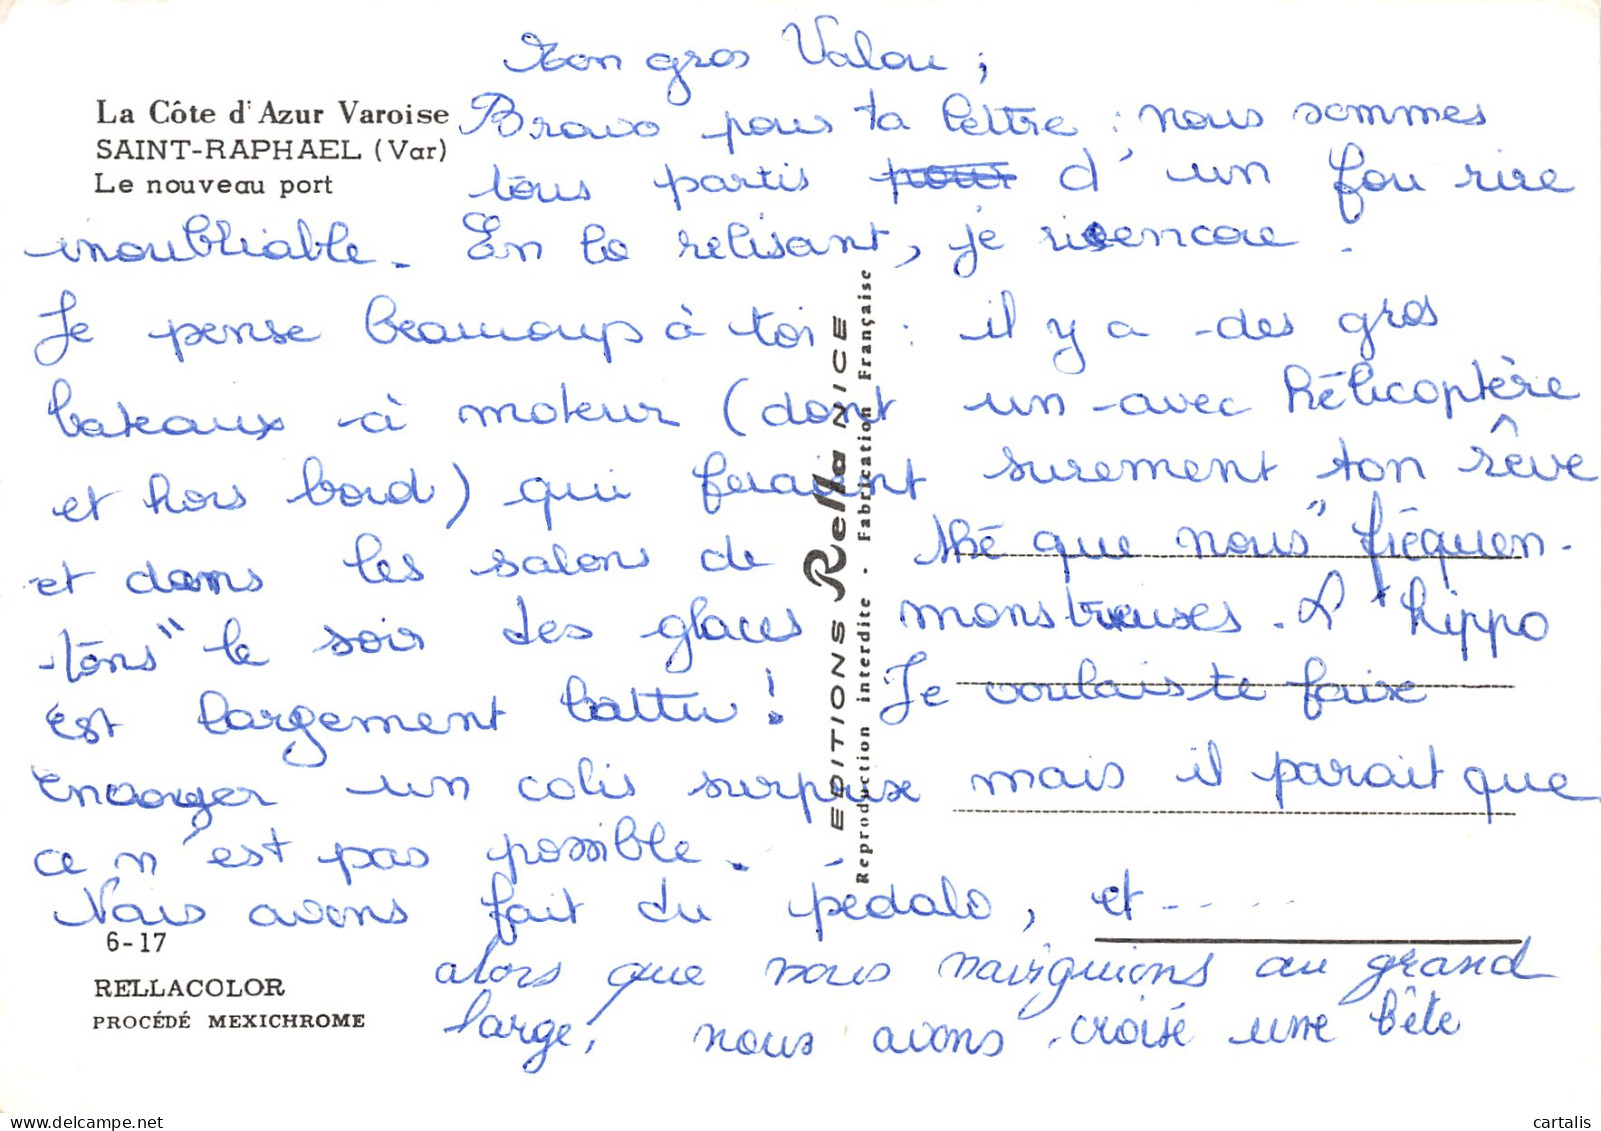 Mon gros Valou ;
La Côte d'Azur Varoise
SAINT-RAPHAEL (Var)
Le nouveau port
Bravo pour ta lettre : nous sommes
tous partis pour d'un fou rire
inoubliable. En la relisant, je ris encore.
Je pense beaucoup à toi : il y a des gros
bateaux à moteur (dont un avec hélicoptère
et hors bord) qui feraient surement ton rêve
et dans les salons de thé que nous "fréquen-
tons" le soir des glaces monstrueuses. L'hippo
est largement battu ! Je voulais te faire
envoyer un colis surprise mais il parait que
ce n'est pas possible.
Nous avons fait du pédalo, et .....
alors que nous naviguions au grand
large, nous avons croisé une bête
6-17
RELLACOLOR
PROCÉDÉ MEXICHROME
EDITIONS Rella NICE
Reproduction interdite - Fabrication Française
cartalis